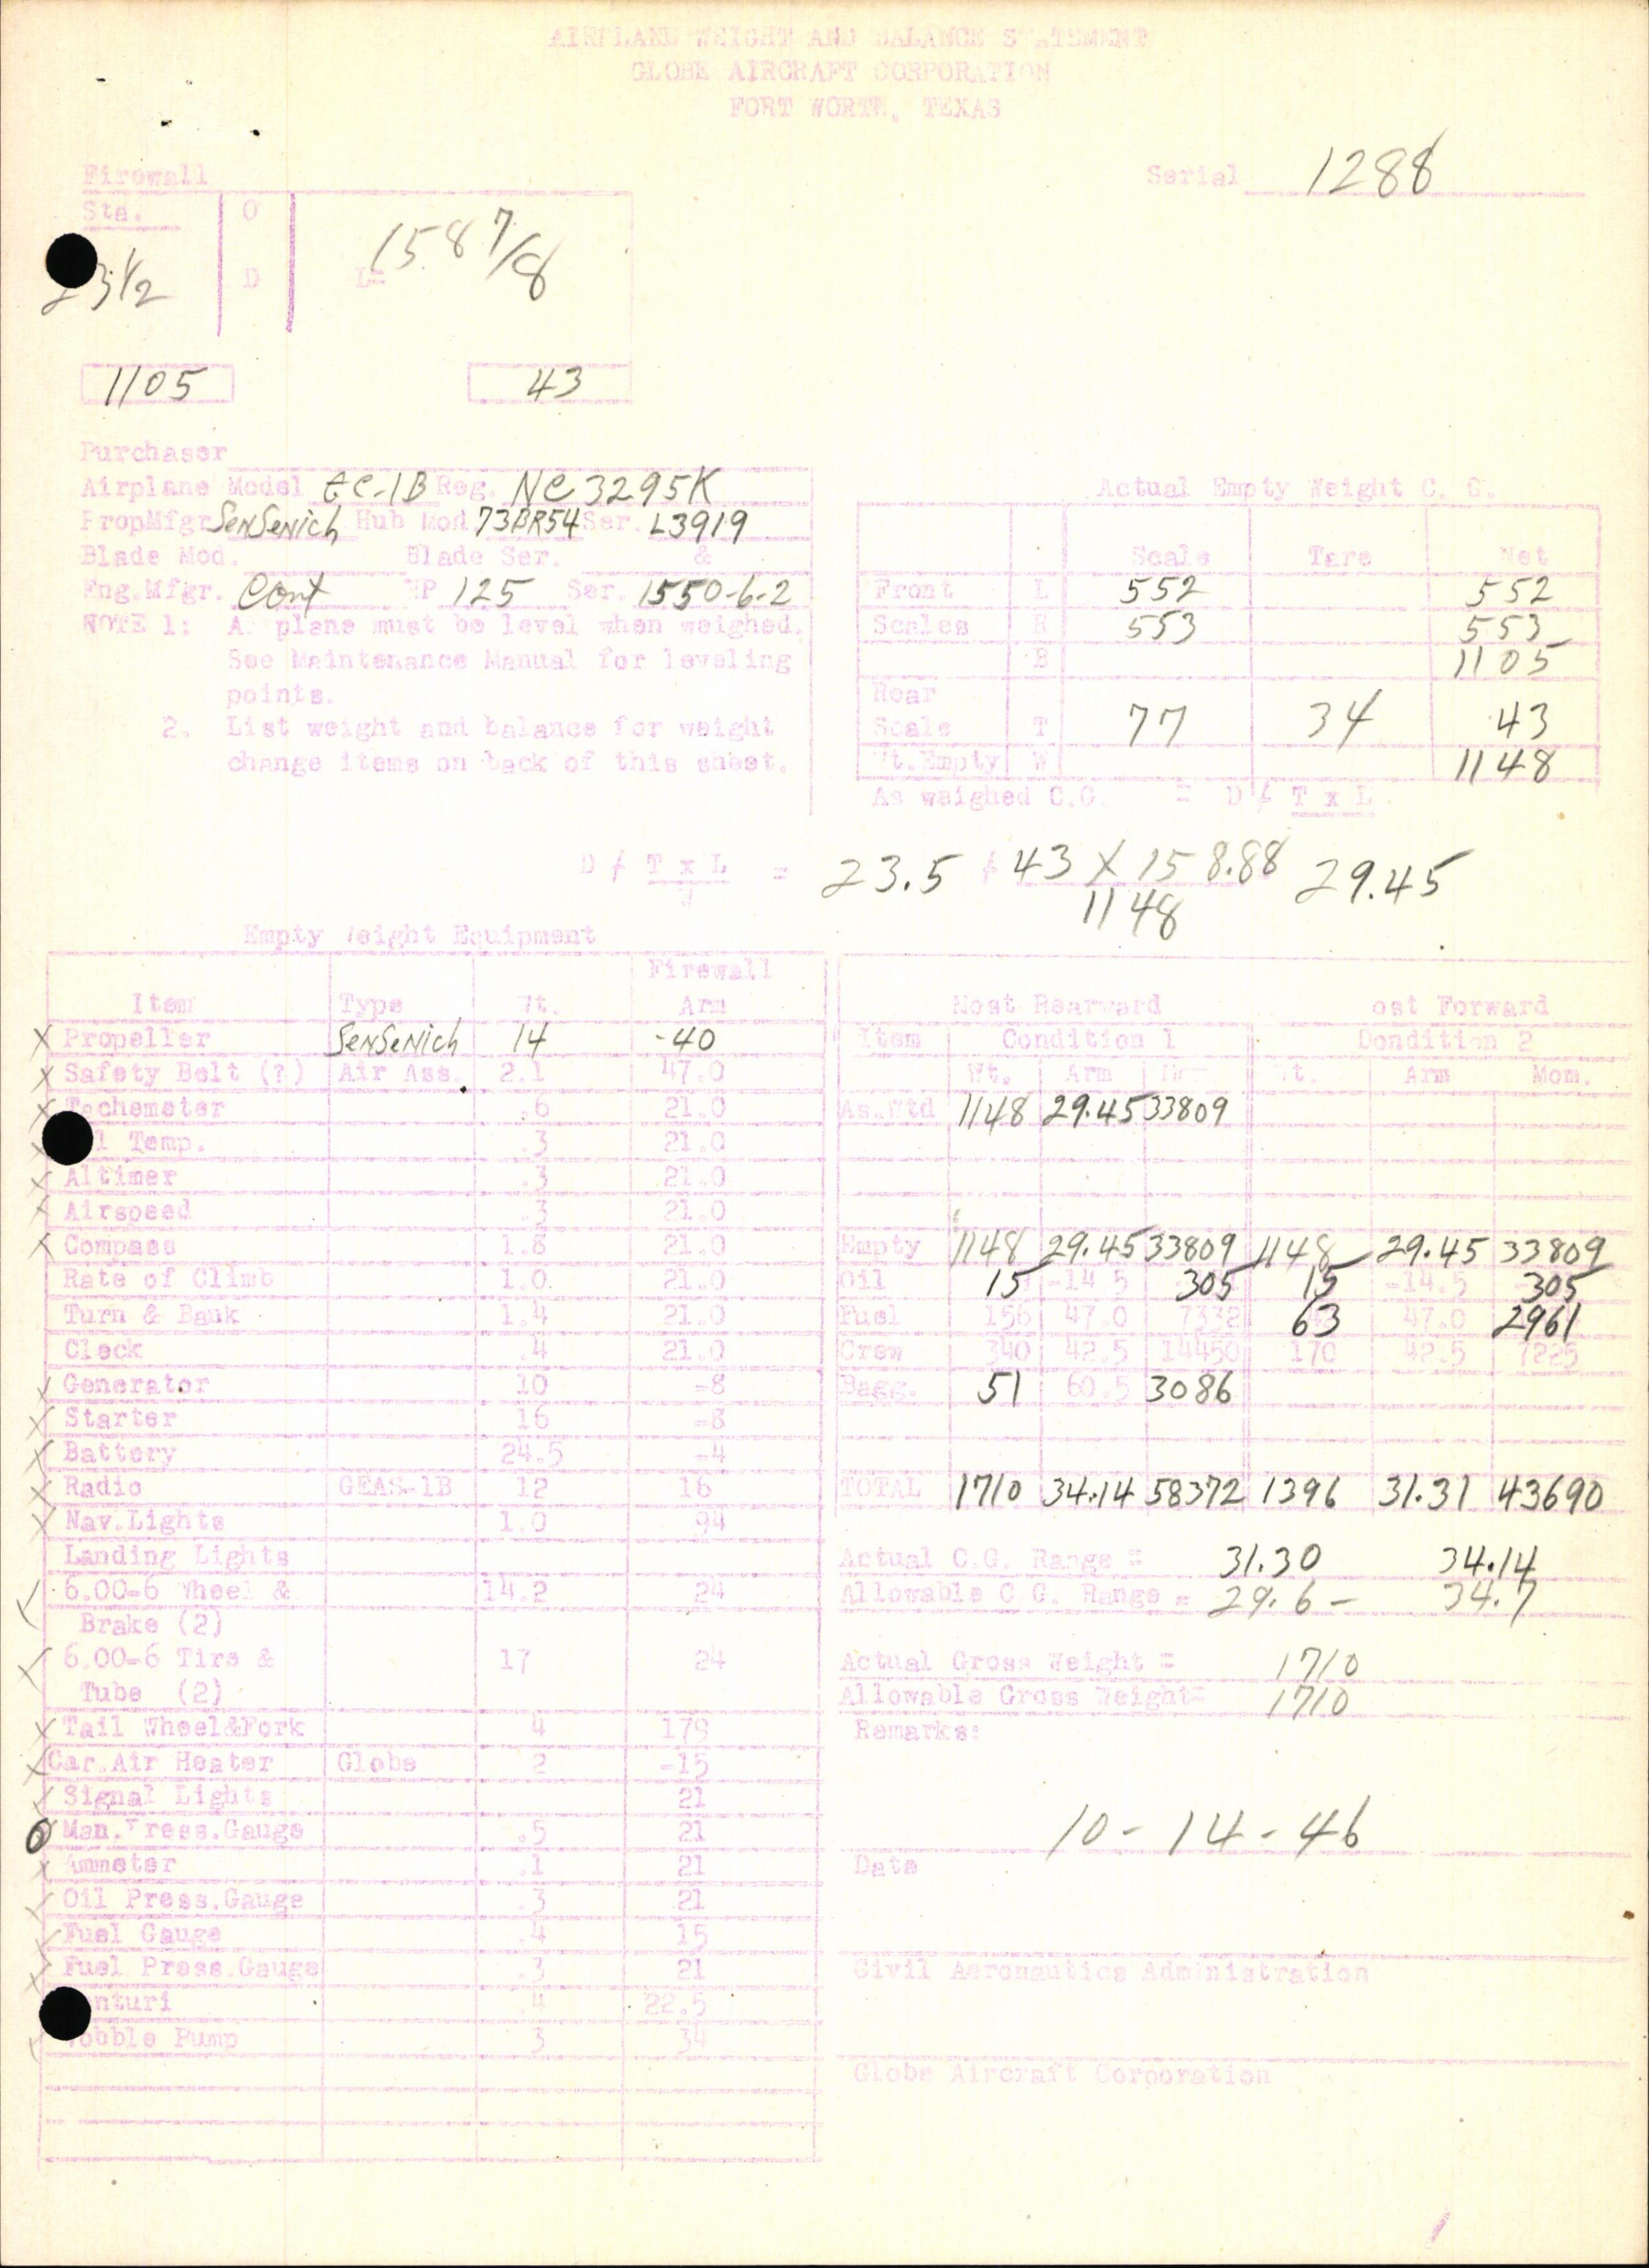 AIRPLANE WEIGHT AND BALANCE STATEMENT
GLOBE AIRCRAFT CORPORATION
FORT WORTH, TEXAS
Serial 1288
Firewall
Sta. O
23 1/2 D L= 158 7/8
1105 43
Purchaser
Airplane Model GC-1B Reg. NC 3295K
PropMfgr SenSenich Hub Mod 73BR54 Ser. L3919
Blade Mod. Blade Ser. &
Eng.Mfgr. Cont HP 125 Ser. 1550-6-2
NOTE 1: A plane must be level when weighed.
See Maintenance Manual for leveling
points.
2. List weight and balance for weight
change items on back of this sheet.
Actual Empty Weight C. G.
Scale Tare Net
Front L 552 552
Scales R 553 553
B 1105
Rear
Scale T 77 34 43
Wt.Empty W 1148
As weighed C.G. = D ≠ T x L
D ≠ T x L = 23.5 ≠ 43 X 158.88 29.45
W 1148
Empty Weight Equipment
Firewall
Item Type Wt. Arm
X Propeller SenSenich 14 -40
X Safety Belt (?) Air Ass. 2.1 47.0
X Tachemeter .6 21.0
l Temp. .3 21.0
X Altimer .3 21.0
X Airspeed .3 21.0
X Compass 1.8 21.0
Rate of Climb 1.0 21.0
Turn & Bauk 1.4 21.0
Clock .4 21.0
X Generator 10 -8
X Starter 16 -8
X Battery 24.5 -4
X Radio GEAS-1B 12 16
X Nav.Lights 1.0 94
Landing Lights
X 6.00-6 Wheel & 14.2 24
Brake (2)
X 6.00-6 Tire & 17 24
Tube (2)
X Tail Wheel&Fork 4 179
X Car.Air Heater Globe 2 -15
X Signal Lights 21
O Man.Press.Gauge .5 21
X Ammeter .1 21
X Oil Press.Gauge .3 21
X Fuel Gauge .4 15
X Fuel Press.Gauge .3 21
enturi .4 22.5
X Wobble Pump 3 34
Most Rearward ost Forward
Item Condition 1 Dondition 2
Wt. Arm Mom Wt. Arm Mom.
As.Wtd 1148 29.45 33809
Empty 1148 29.45 33809 1148 29.45 33809
Oil 15 -14 5 305 15 -14.5 305
Fuel 156 47.0 7332 63 47.0 2961
Crew 340 42.5 14450 170 42.5 7225
Bagg. 51 60.5 3086
TOTAL 1710 34.14 58372 1396 31.31 43690
Actual C.G. Range = 31.30 34.14
Allowable C G. Range = 29.6 - 34.7
Actual Gross Weight = 1710
Allowable Gross Weight= 1710
Remarks:
10-14-46
Date
Civil Aeronautics Administration
Globe Aircraft Corporation